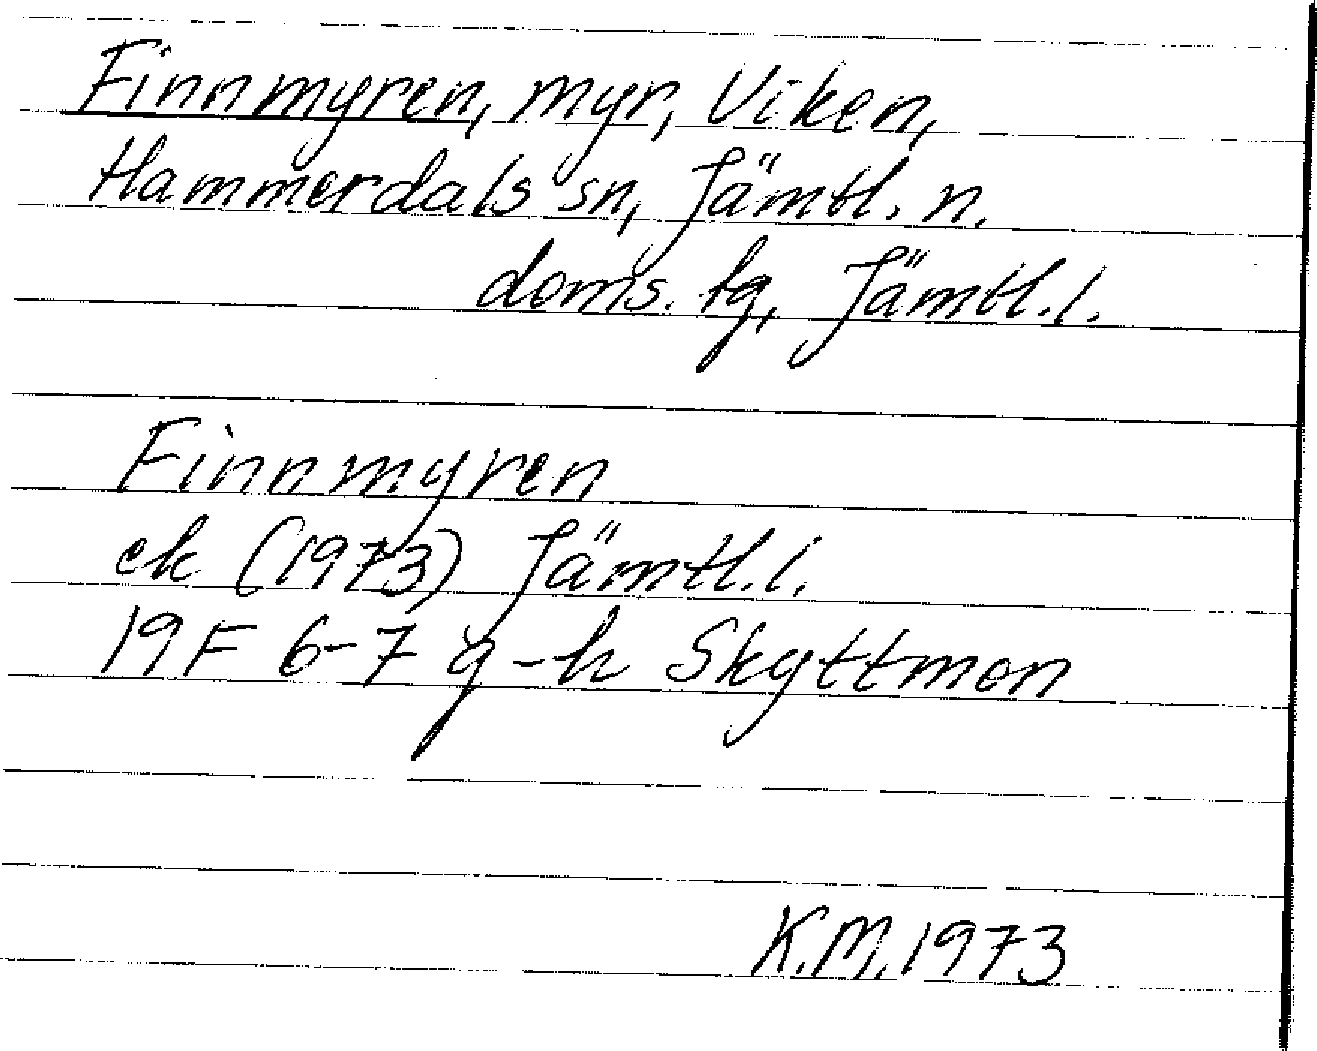 Finnmyren, myr, Viken,
Hammerdals sn, Jämtl. n.
doms. tg, Jämtl. l.
Finnmyren
ek (1973) Jämtl. l.
19F 6-7 g-h Skyttmon
K.M. 1973